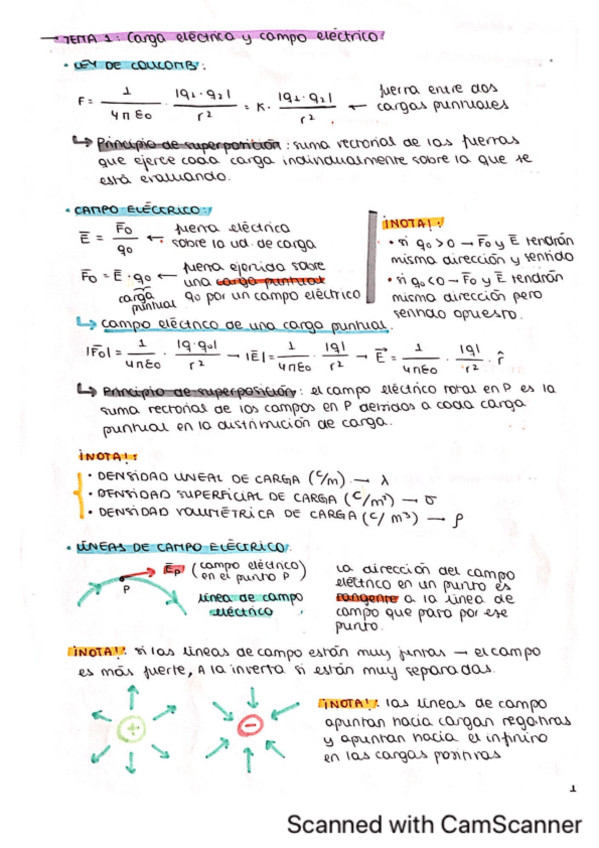 → TEMA 1: Carga eléctrica y campo eléctrico:
· LEY DE COULOMB:
F = 1 / 4πε0 · |q1·q2| / r² = K · |q1·q2| / r² ← fuerza entre dos cargas puntuales
↳ Principio de superposición: suma vectorial de las fuerzas
que ejerce cada carga individualmente sobre la que se
está evaluando.
· CAMPO ELÉCTRICO:
E̅ = F̅0 / q0 ← fuerza eléctrica sobre la ud. de carga
F̅0 = E̅·q0 ← fuerza ejercida sobre
una carga puntual
carga puntual
q0 por un campo eléctrico
¡NOTA!:
· si q0 > 0 → F̅0 y E̅ tendrán
misma dirección y sentido
· si q0 < 0 → F̅0 y E̅ tendrán
misma dirección pero
sentido opuesto.
↳ campo eléctrico de una carga puntual.
|F̅0| = 1 / 4πε0 · |q·q0| / r² → |E̅| = 1 / 4πε0 · |q| / r² → E⃗ = 1 / 4πε0 · |q| / r² · r̂
↳ Principio de superposición: el campo eléctrico total en P es la
suma vectorial de los campos en P debidos a cada carga
puntual en la distribución de carga.
¡NOTA!:
· DENSIDAD LINEAL DE CARGA (C/m) → λ
· DENSIDAD SUPERFICIAL DE CARGA (C/m²) → σ
· DENSIDAD VOLUMÉTRICA DE CARGA (C/m³) → ρ
· LÍNEAS DE CAMPO ELÉCTRICO:
E̅p (campo eléctrico)
en el punto P
P
línea de campo
eléctrico
La dirección del campo
eléctrico en un punto es
tangente a la línea de
campo que pasa por ese
punto.
¡NOTA!: si las líneas de campo están muy juntas → el campo
es más fuerte, A la inversa si están muy separadas.
+
−
¡NOTA!: las líneas de campo
apuntan hacia cargas negativas
y apuntan hacia el infinito
en las cargas positivas
1
Scanned with CamScanner